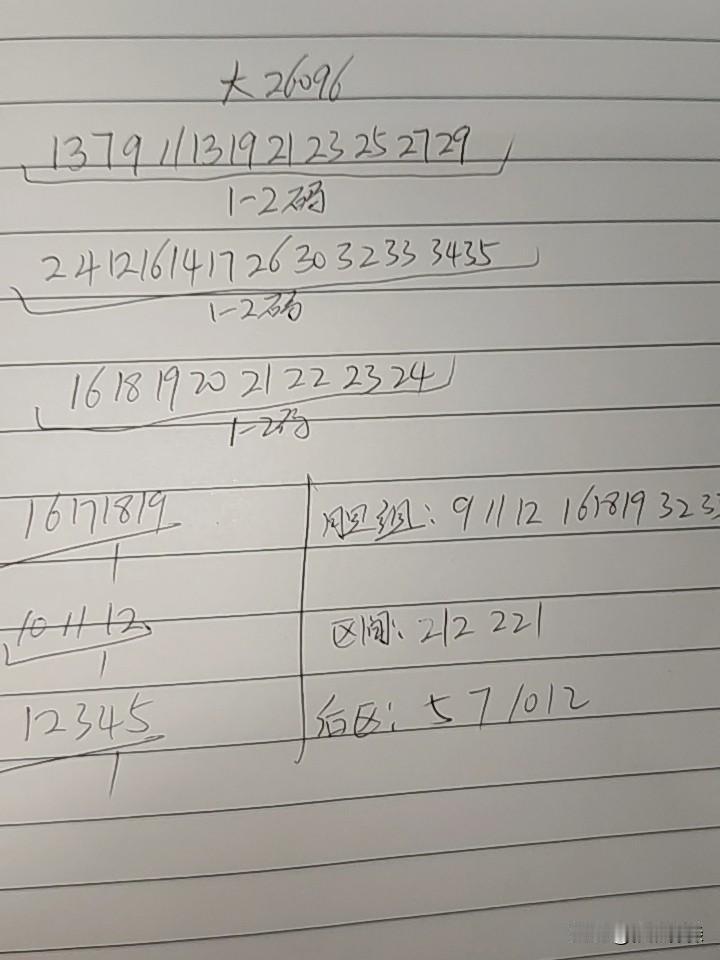 大26096
1 3 7 9 11 13 19 21 23 25 27 29
1-2码
2 4 12 16 14 17 26 30 32 33 34 35
1-2码
16 18 19 20 21 22 23 24
1-2码
16 17 18 19
1
10 11 12
1
1 2 3 4 5
1
胆组：9 11 12 16 18 19 32 33
区间：212 221
后区：5 7 10 12